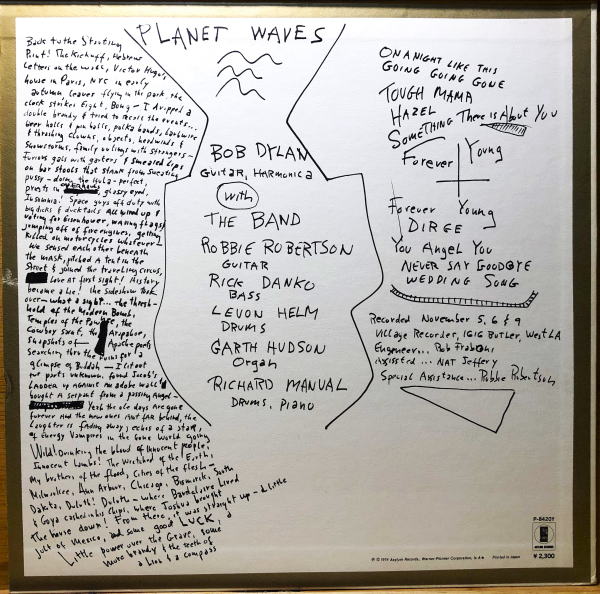 PLANET WAVES
Back to the Starting
Point! The Kickoff, Hebrew
Letters on the wall, Victor Hugo's
house in Paris, NYC in early
autumn, leaves flying in the park, the
clock strikes Eight, Bong - I dropped a
double brandy & tried to recall the events...
beer halls & pin balls, polka bands, barbwire
& thrashing clowns, objects, headwinds &
Snowstorms, family outings with strangers -
Furious gals with garters & smeared Lips
on bar stools that stank from sweating
pussy - doing the Hula - perfect,
priests in overhauls, glassy eyed,
Insomnia! Space guys off duty with
big dicks & ducktails All wired up &
voting for Eisenhower, waving flags &
jumping off of fire engines, getting
Killed on motorcycles whatever -
We sensed each other beneath
the mask, pitched a tent in the
Street & joined the traveling circus,
Love at first sight! History
became a Lie! the sideshow took
over - what a sight... the thresh-
hold of the Modern Bomb,
Temples of the Pawnee, the
Cowboy saint, the Arapahoe,
snapshots of Apache poets
Searching thru the ruins for a
glimpse of Buddah - I lit out
for parts unknown, found Jacob's
LADDER up against an adobe wall &
bought A serpent from a passing Angel -
Yeah the ole days Are gone
forever And the new ones Aint far behind, the
Laughter is fading away, echos of a star,
of Energy Vampires in the Gone World going
Wild! Drinking the blood of innocent people,
Innocent Lambs! The Wretched of the Earth,
My brothers of the flood, Cities of the flesh -
Milwaukee, Ann Arbor, Chicago, Bismarck, South
Dakota, Duluth! Duluth - where Baudelaire Lived
& Goya cashed in his Chips, where Joshua brought
The house down! From there, it was straight up - a little
jolt of Mexico, and some good LUCK, a
Little power over the Grave, some
more brandy & the teeth of
a Lion & a compass
BOB DYLAN
Guitar, Harmonica
with
THE BAND
ROBBIE ROBERTSON
GUITAR
RICK DANKO
BASS
LEVON HELM
DRUMS
GARTH HUDSON
Organ
RICHARD MANUAL
DRUMS, PIANO
ON A NIGHT LIKE THIS
GOING GOING GONE
TOUGH MAMA
HAZEL
SOMETHING There is About You
Forever Young
Forever Young
DIRGE
You Angel You
NEVER SAY GOODBYE
WEDDING SONG
Recorded November 5, 6 & 9
Village Recorder, 1616 Butler, West LA
Engeneer... Rob Fraboni
Assissted... NAT Jeffery
Special Assistance... Robbie Robertson
P-8420Y
ASYLUM RECORDS
¥2,300
℗ © 1974 Asylum Records, Warner-Pioneer Corporation, Printed in Japan